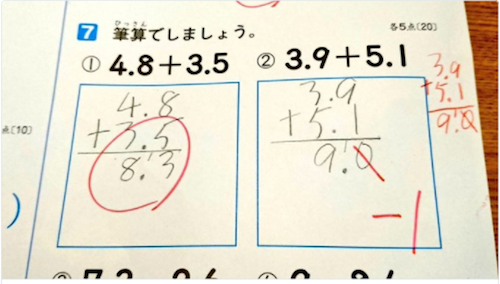 7 筆算でしましょう。 各5点(20)
ひっさん
① 4.8+3.5 ② 3.9+5.1
4.8
+3.5
8.3
3.9
+5.1
9.0
-1
3.9
+5.1
9.0
点(10)